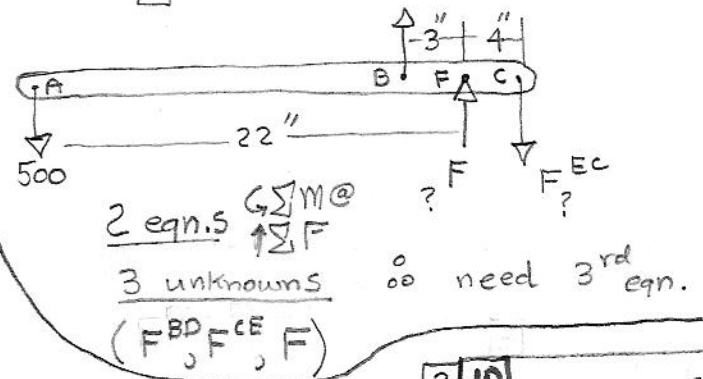 3" 4"
A B F C
22"
500 ? F F EC ?
2 eqn.s ΣM@
↑ΣF
3 unknowns ∴ need 3rd eqn.
(F^BD, F^CE, F)